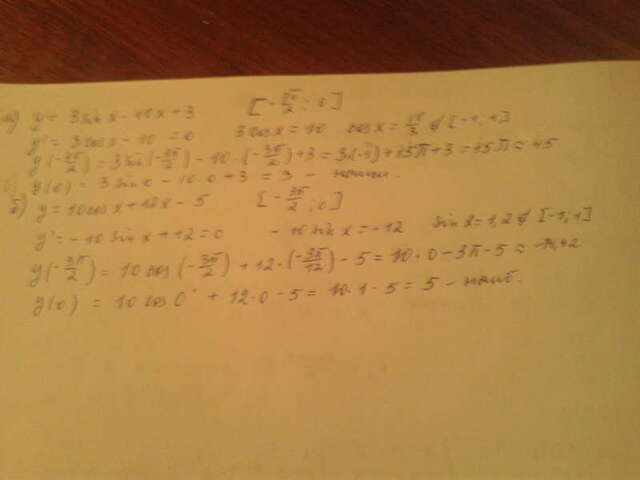 а) y = 3 sin x - 10x + 3 [-3π/2 ; 0]
y' = 3 cos x - 10 = 0 3 cos x = 10 cos x = 10/3 ∉ [-1, 1]
y(-3π/2) = 3 sin (-3π/2) - 10 · (-3π/2) + 3 = 3·(-1) + 15π + 3 = 15π ≈ 45
y(0) = 3 sin - 10·0 + 3 = 3 - наим.
б) y = 10 cos x + 12x - 5 [-3π/2 ; 0]
y' = -10 sin x + 12 = 0 -10 sin x = -12 sin x = 1,2 ∉ [-1, 1]
y(-3π/2) = 10 cos (-3π/2) + 12 · (-3π/12) - 5 = 10·0 - 3π - 5 ≈ -14,42
y(0) = 10 cos 0° + 12·0 - 5 = 10·1 - 5 = 5 - наиб.